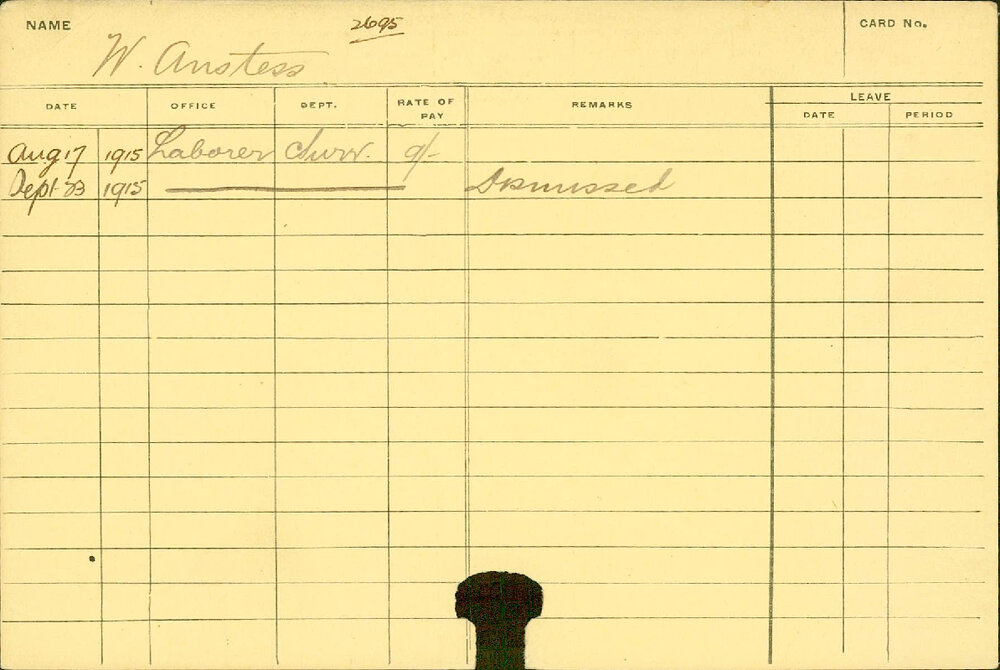 NAME 2695 CARD No.
W. Anstess
DATE OFFICE DEPT. RATE OF PAY REMARKS LEAVE
DATE PERIOD
Aug 17 1915 Laborer Surv. 9/-
Sept 23 1915 Dismissed